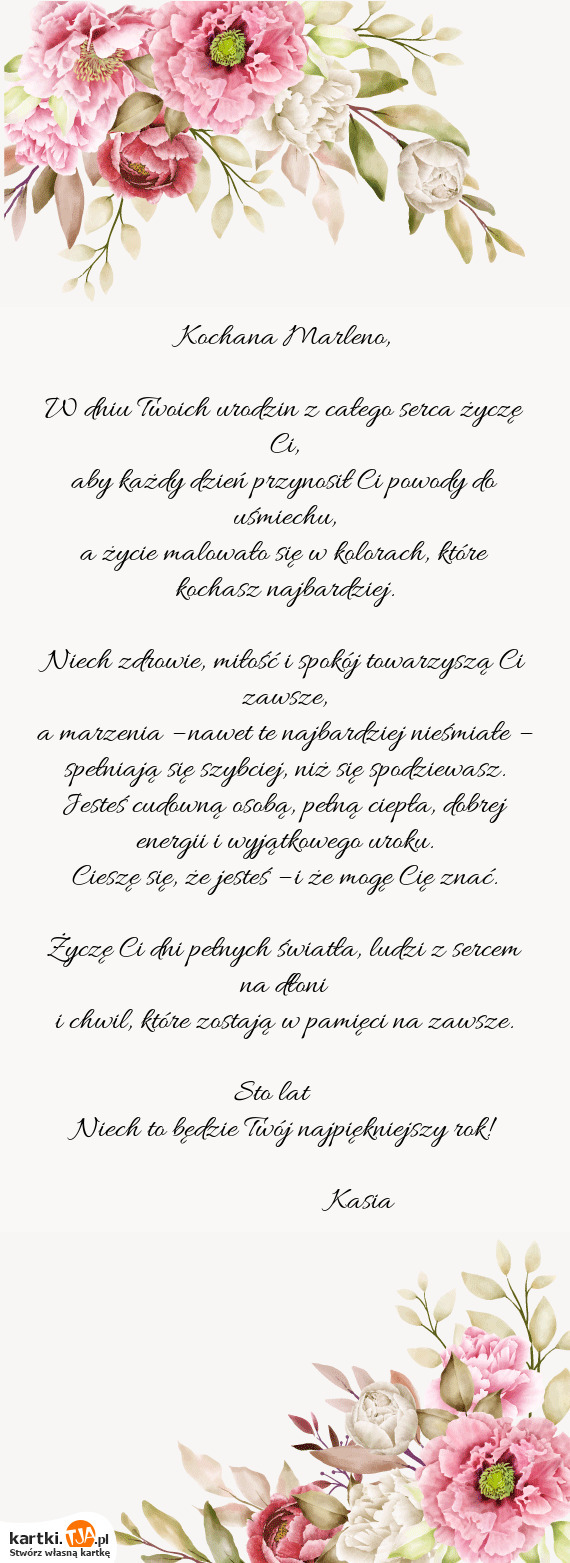 Kochana Marleno,
W dniu Twoich urodzin z całego serca życzę
Ci,
aby każdy dzień przynosił Ci powody do
uśmiechu,
a życie malowało się w kolorach, które
kochasz najbardziej.
Niech zdrowie, miłość i spokój towarzyszą Ci
zawsze,
a marzenia – nawet te najbardziej nieśmiałe –
spełniają się szybciej, niż się spodziewasz.
Jesteś cudowną osobą, pełną ciepła, dobrej
energii i wyjątkowego uroku.
Cieszę się, że jesteś – i że mogę Cię znać.
Życzę Ci dni pełnych światła, ludzi z sercem
na dłoni
i chwil, które zostają w pamięci na zawsze.
Sto lat
Niech to będzie Twój najpiękniejszy rok!
Kasia
kartki.TJA.pl
Stwórz własną kartkę